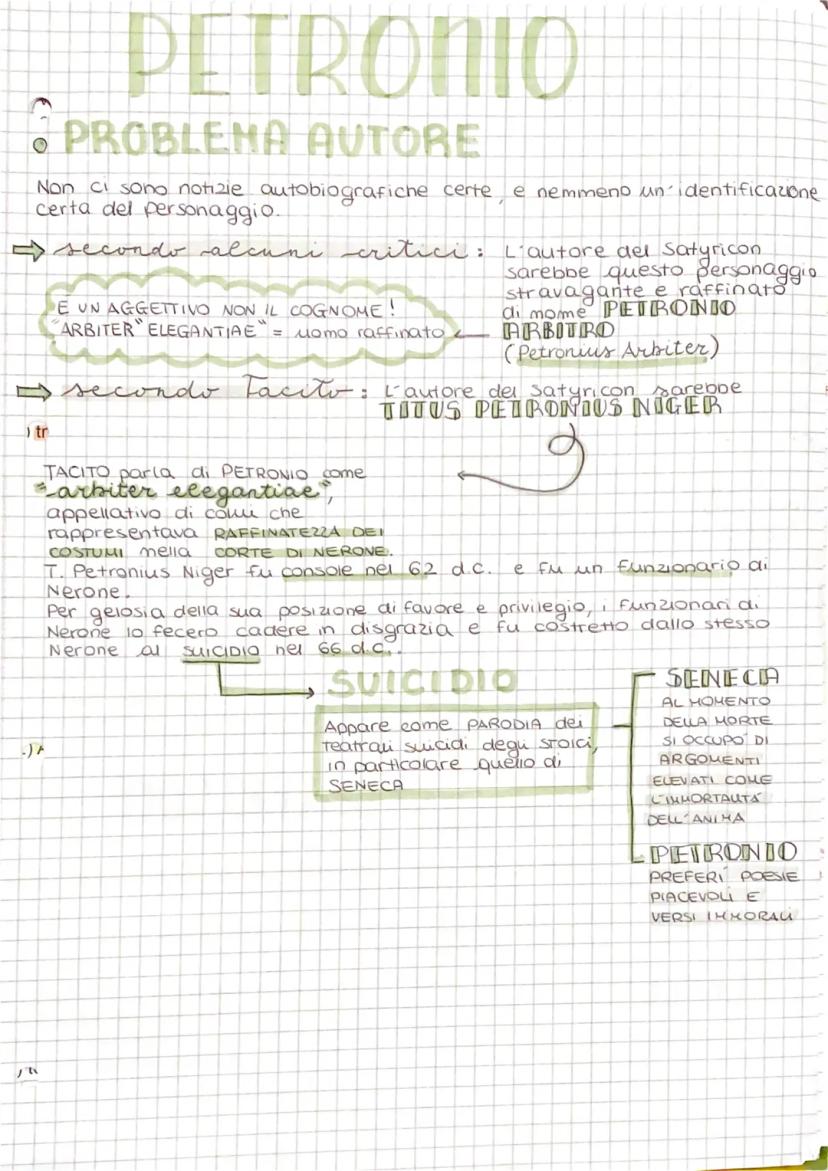 PETRONIO
PROBLEMA AUTORE
Non ci sono notizie autobiografiche certe, e nemmeno un'identificazione
certa del personaggio.
secondo alcuni critici: L'autore del Satyricon
sarebbe questo personaggio
stravagante e raffinato
di nome PETRONIO
ARBITRO
(Petronius Arbiter)
È UN AGGETTIVO NON IL COGNOME!
"ARBITER" ELEGANTIAE" = uomo raffinato
secondo Tacito: L'autore del Satyricon sarebbe
TITUS PETRONIUS NIGER
) tr
TACITO parla di PETRONIO come
"arbiter elegantiae",
appellativo di colui che
rappresentava RAFFINATEZZA DEI
COSTUMI nella CORTE DI NERONE.
T. Petronius Niger fu console nel 62 d.C. e fu un funzionario di
Nerone.
Per gelosia della sua posizione di favore e privilegio, i funzionari di
Nerone lo fecero cadere in disgrazia e fu costretto dallo stesso
Nerone al SUICIDIO nel 66 d.C..
SUICIDIO
Appare come PARODIA dei
teatrali suicidi degli STOICI,
in particolare quello di
SENECA
SENECA
AL MOMENTO
DELLA MORTE
SI OCCUPO' DI
ARGOMENTI
ELEVATI COME
L'IMMORTALITA'
DELL'ANIMA
PETRONIO
PREFERI' POESIE
PIACEVOLI E
VERSI IMMORALI